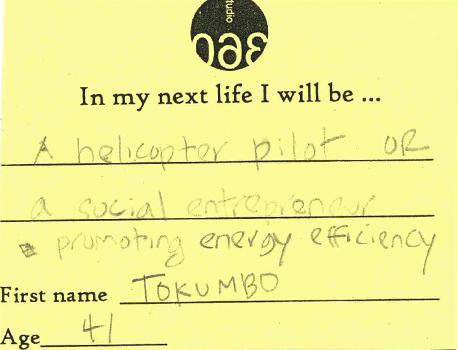 studio
360
In my next life I will be ...
A helicopter pilot OR
a social entrepreneur
promoting energy efficiency
First name TOKUMBO
Age 41